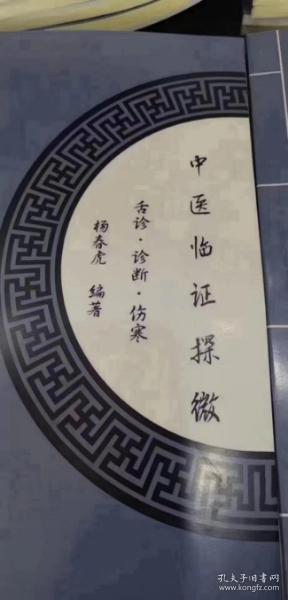 中医临证探微
舌诊·诊断·伤寒
杨春虎 编著
孔夫子旧书网
www.kongfz.com